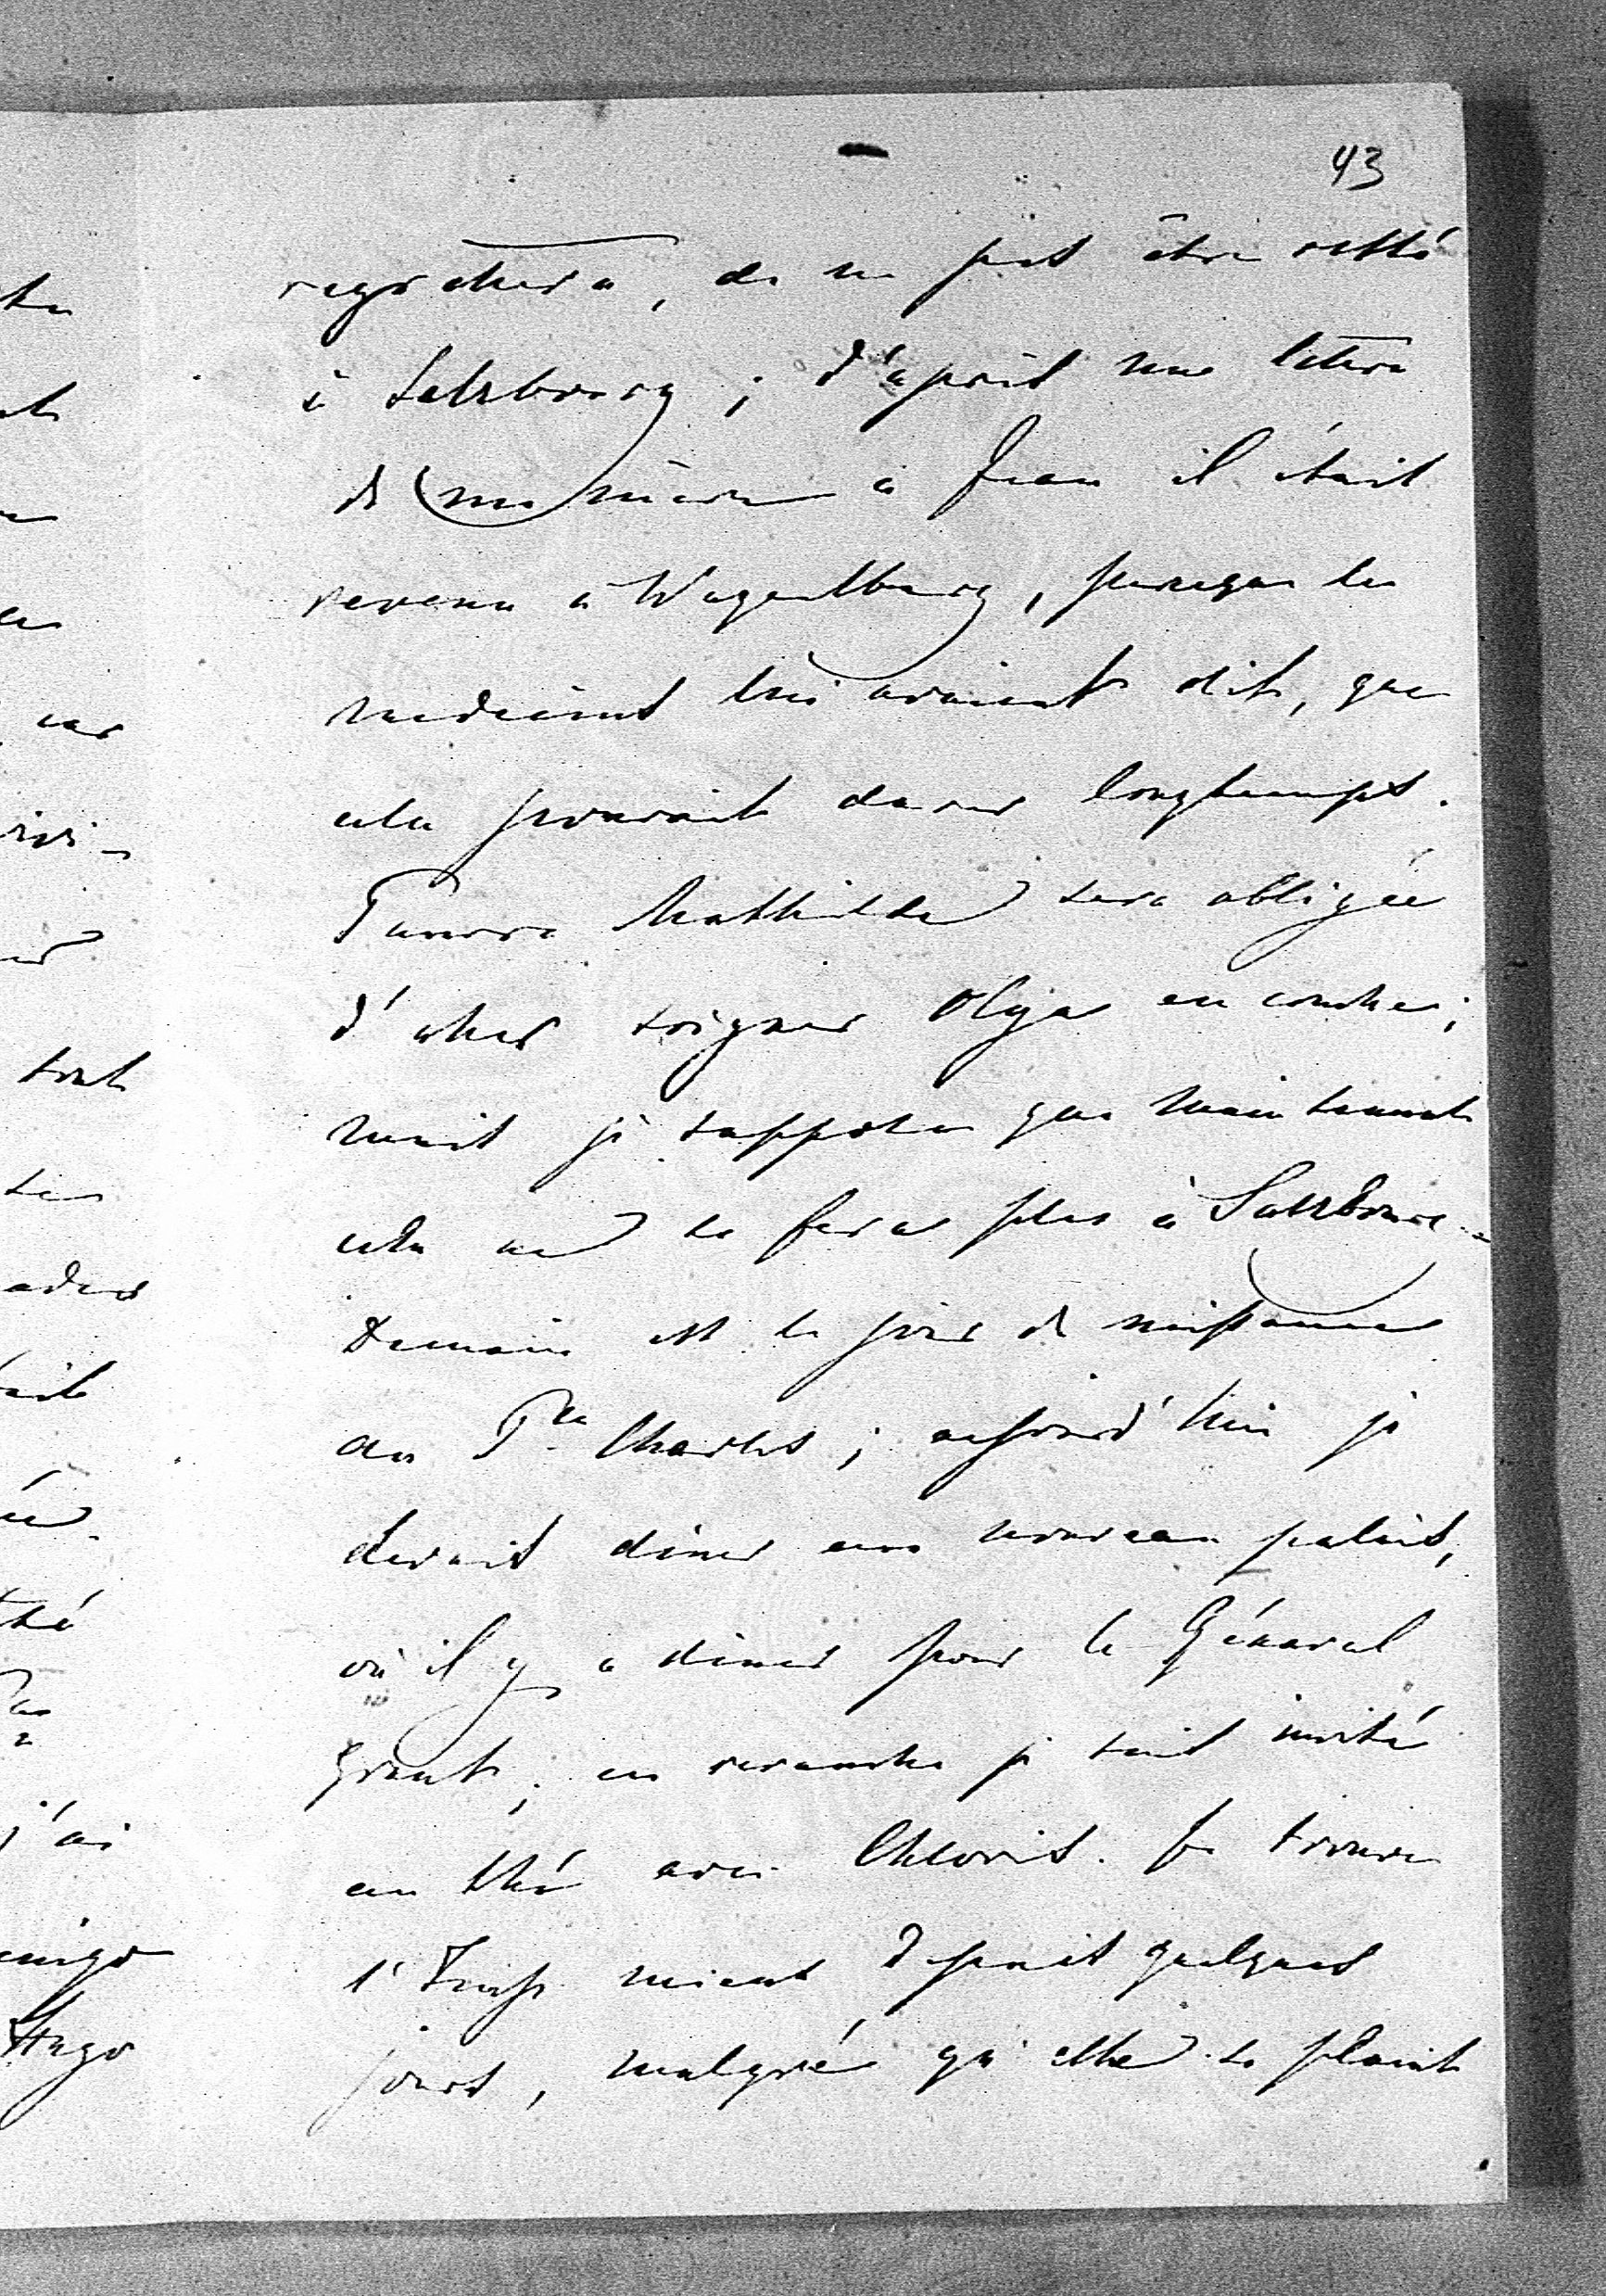 43
regrettera, de ne pas être resté
à Salzbourg ; d'après une lettre
de ma mère à Jean il était
revenu à Wagensberg, parceque les
medecins lui avaient dit, que
cela pouvait durer longtemps.
Pauvre Mathilde sera obligée
d'aller soigner Olga en couches ;
mais je suppose que maintenant
cela ne se fera plus à Salzbourg.
Demain est le jour de naissance
du Pce Charles ; aujourd'hui je
devais dîner au nouveau palais,
où il y a dîner pour le Général
Grant ; en revanche je suis invité
au thé avec Chlovis. Je trouve
mieux depuis quelques
jours, malgré qu'elle se plaint
car
tout
j'ai
Hugo